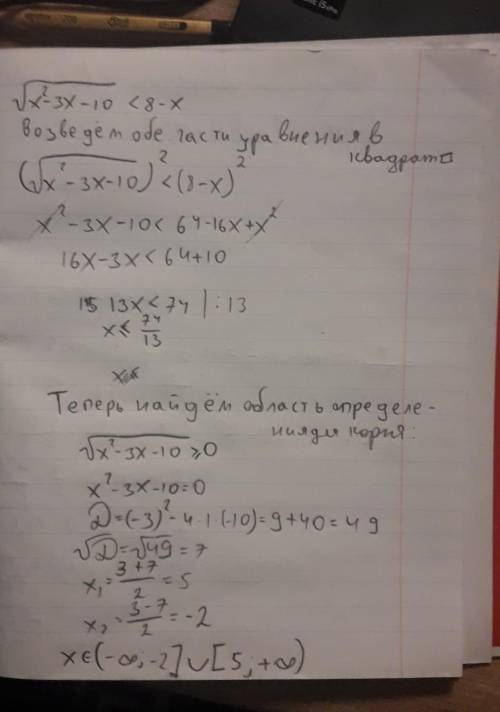 √x²-3x-10 < 8-x
Возведём обе части уравнения в
квадрат
(√x²-3x-10)² < (8-x)²
x²-3x-10 < 64-16x+x²
16x-3x < 64+10
13x < 74 | : 13
x < 74/13
x <
Теперь найдём область определе-
ния для корня:
√x²-3x-10 ≥ 0
x²-3x-10=0
D=(-3)²-4·1·(-10)=9+40=49
√D=√49=7
x₁=(3+7)/2=5
x₂=(3-7)/2=-2
x∈(-∞;-2]∪[5;+∞)